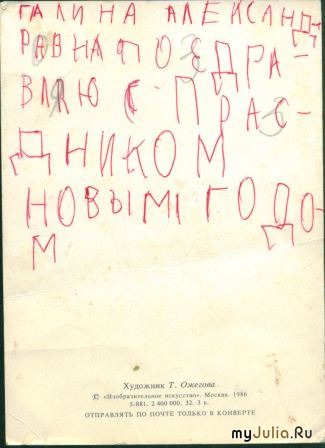 ГАЛИНА АЛЕКСАНД
РОВНА ПОЗДРА-
ВЛЯЮ С ПРАЗ-
ДНИКОМ
НОВЫМ ГОДО-
М
Художник Т. Ожегова
© «Изобразительное искусство». Москва. 1986
5-881. 2 400 000. 32. 3 к.
ОТПРАВЛЯТЬ ПО ПОЧТЕ ТОЛЬКО В КОНВЕРТЕ
myJulia.Ru